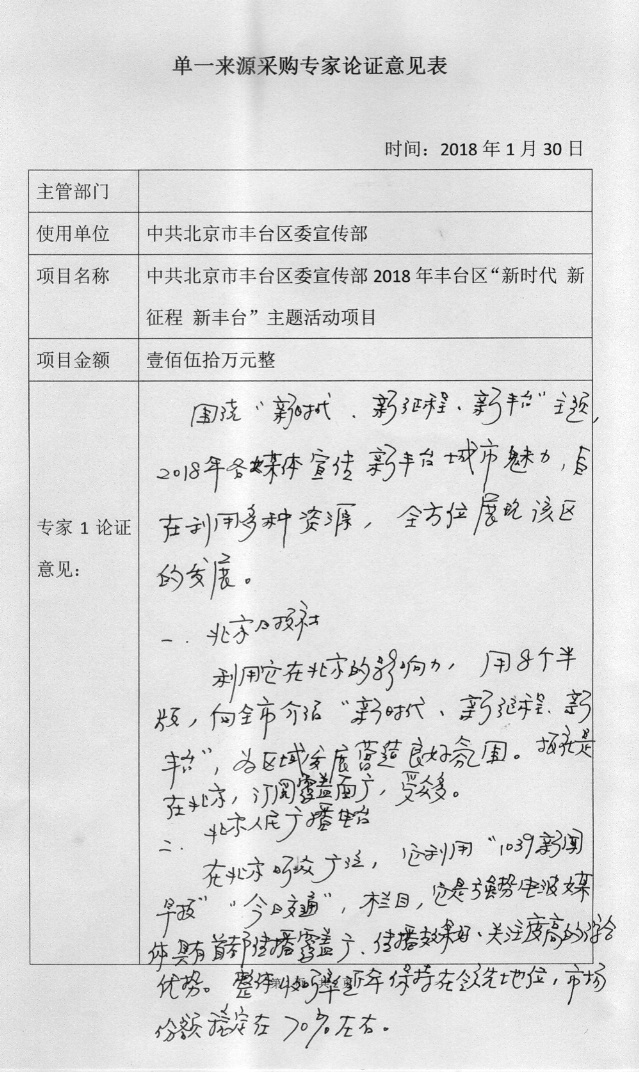 单一来源采购专家论证意见表
时间：2018 年 1 月 30 日
主管部门
使用单位 中共北京市丰台区委宣传部
项目名称 中共北京市丰台区委宣传部 2018 年丰台区“新时代 新
征程 新丰台”主题活动项目
项目金额 壹佰伍拾万元整
专家 1 论证
意见：
围绕“新时代、新征程、新丰台”主题，
2018年各媒体宣传新丰台城市魅力，旨
在利用多种资源，全方位展现该区
的发展。
一．北京日报社
利用它在北京的影响力，用8个半
版，向全市介绍“新时代、新征程、新
丰台”，为区域发展营造良好氛围。报社是
在北京，订阅覆盖面广，受众多。
二．北京人民广播电台
在北京听众广泛，它利用“1039新闻
早报”“今日交通”，栏目，它是强势电波媒
体具有首都传播覆盖广、传播效果好、关注度高的综合
优势。整体收听率近年保持在领先地位，市场
份额稳定在70%左右。